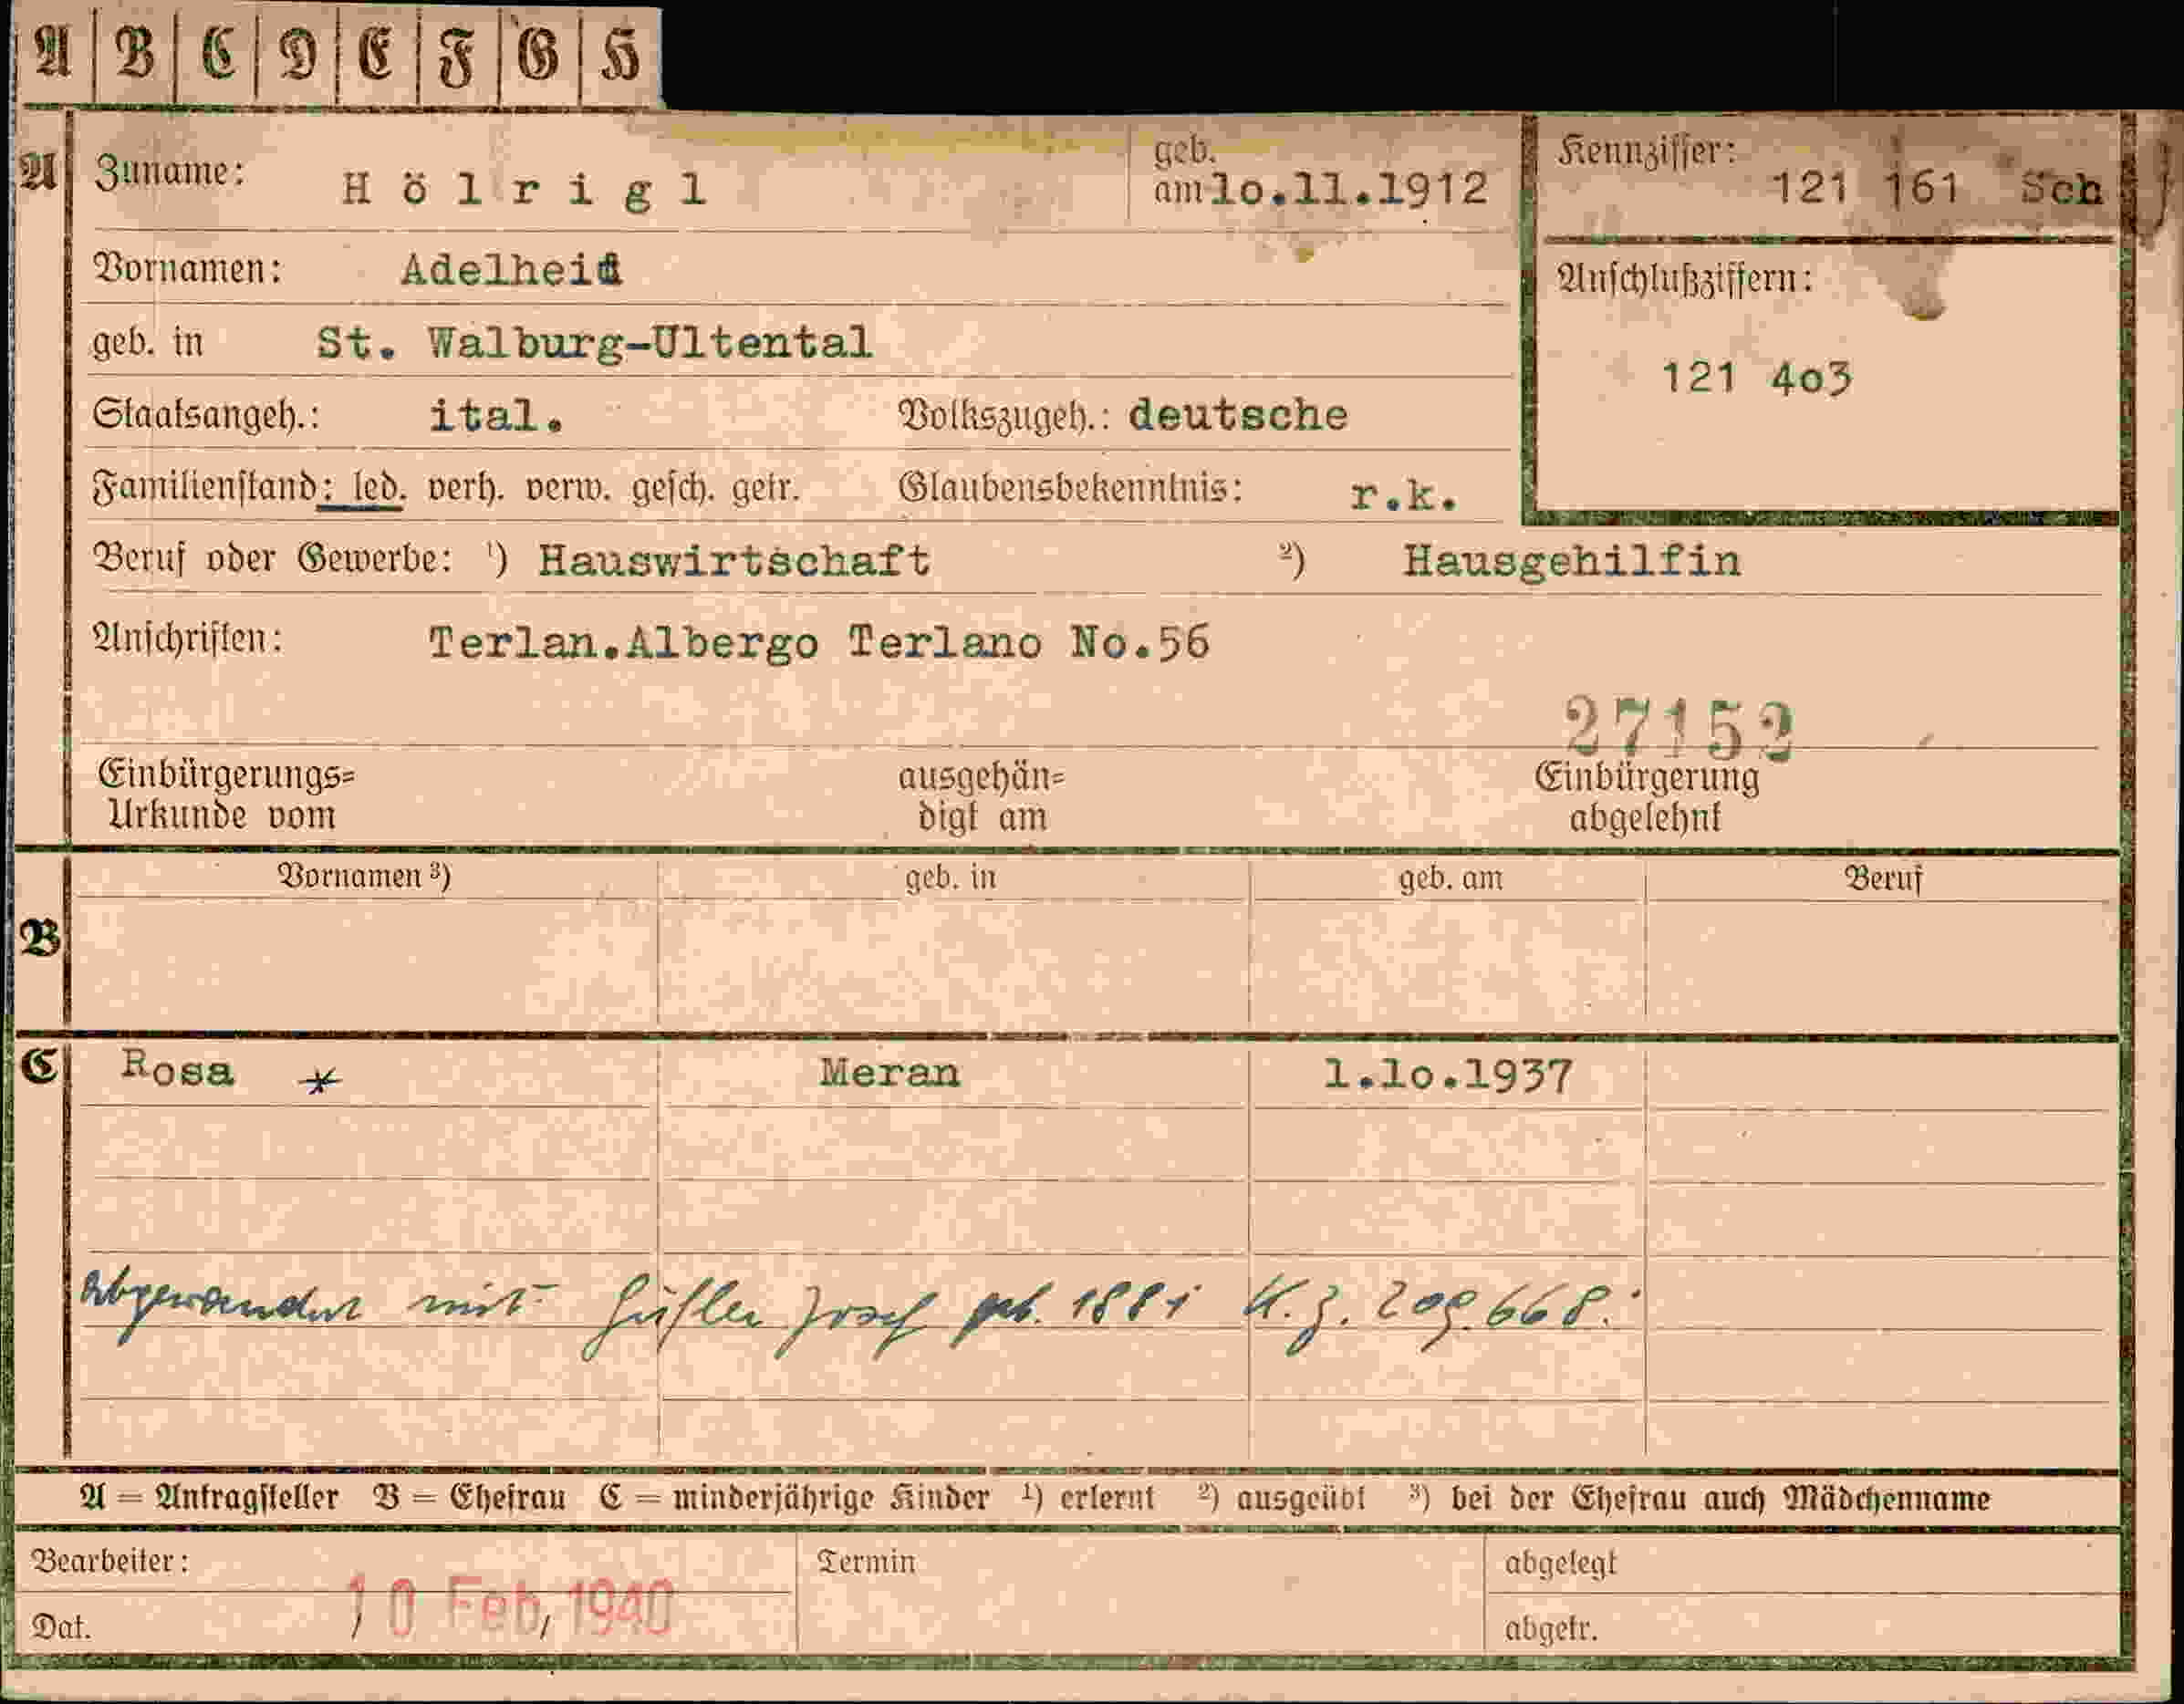 A B C D E F G H
A Zuname: Hölrigl geb. am 1o.11.1912 Kennziffer: 121 161 Sch
Vornamen: Adelheid Anschlußziffern:
geb. in St. Walburg-Ultental 121 4o3
Staatsangeh.: ital. Volkszugeh.: deutsche
Familienstand: led. verh. verw. gesch. getr. Glaubensbekenntnis: r.k.
Beruf oder Gewerbe: ¹) Hauswirtschaft ²) Hausgehilfin
Anschriften: Terlan.Albergo Terlano No.56
27152
Einbürgerungs= ausgehän= Einbürgerung
Urkunde vom digt am abgelehnt
Vornamen ³) geb. in geb. am Beruf
B
C Rosa * Meran 1.1o.1937
abgewandert mit Josef geb. 1881 K.Z. 209.668.
A = Antragsteller B = Ehefrau C = minderjährige Kinder ¹) erlernt ²) ausgeübt ³) bei der Ehefrau auch Mädchenname
Bearbeiter: Termin abgelegt
Dat. 10 Feb, 1940 abgetr.